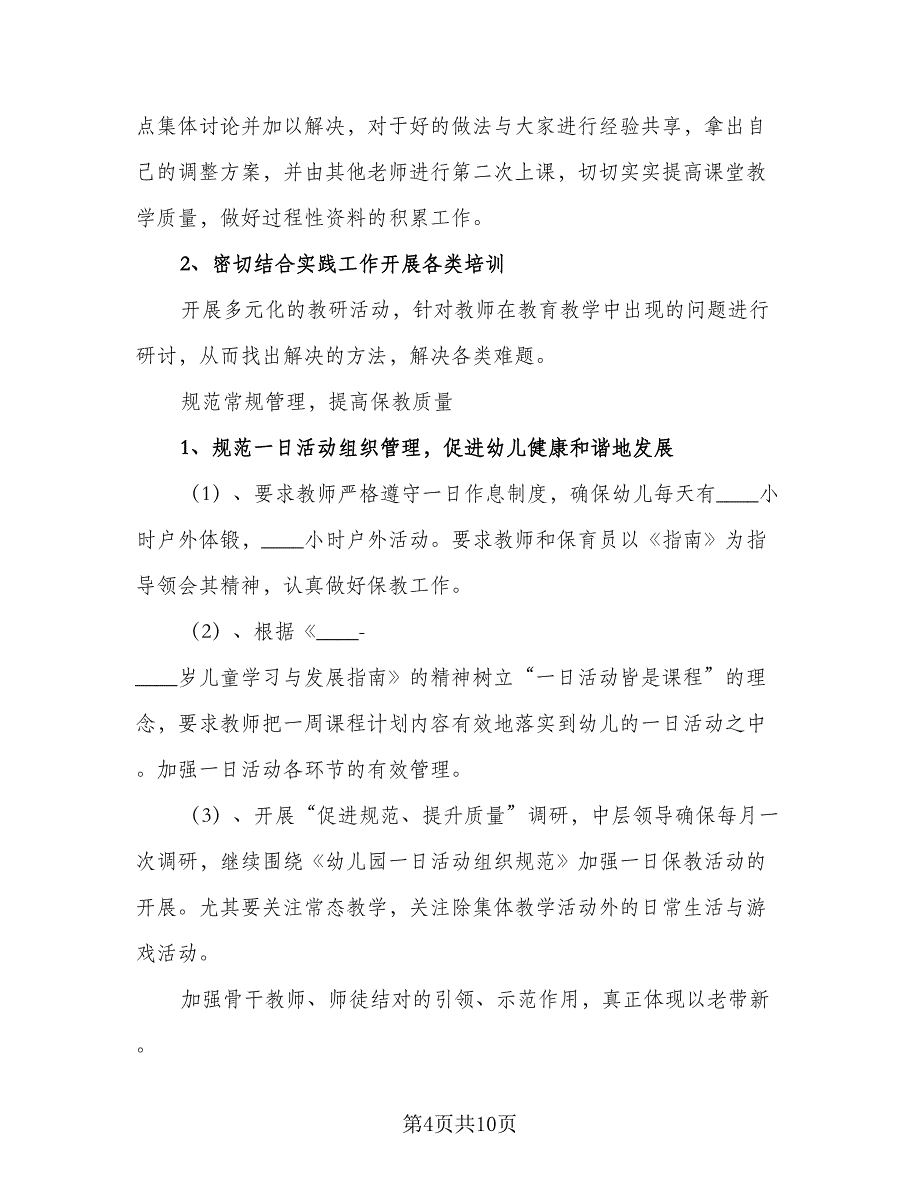 点集体讨论并加以解决，对于好的做法与大家进行经验共享，拿出自
己的调整方案，并由其他老师进行第二次上课，切切实实提高课堂教
学质量，做好过程性资料的积累工作。
2、密切结合实践工作开展各类培训
开展多元化的教研活动，针对教师在教育教学中出现的问题进行
研讨，从而找出解决的方法，解决各类难题。
规范常规管理，提高保教质量
1、规范一日活动组织管理，促进幼儿健康和谐地发展
（1）、要求教师严格遵守一日作息制度，确保幼儿每天有____小
时户外体锻，____小时户外活动。要求教师和保育员以《指南》为指
导领会其精神，认真做好保教工作。
（2）、根据《____-
____岁儿童学习与发展指南》的精神树立“一日活动皆是课程”的理
念，要求教师把一周课程计划内容有效地落实到幼儿的一日活动之中
。加强一日活动各环节的有效管理。
（3）、开展“促进规范、提升质量”调研，中层领导确保每月一
次调研，继续围绕《幼儿园一日活动组织规范》加强一日保教活动的
开展。尤其要关注常态教学，关注除集体教学活动外的日常生活与游
戏活动。
加强骨干教师、师徒结对的引领、示范作用，真正体现以老带新
。
第4页共10页